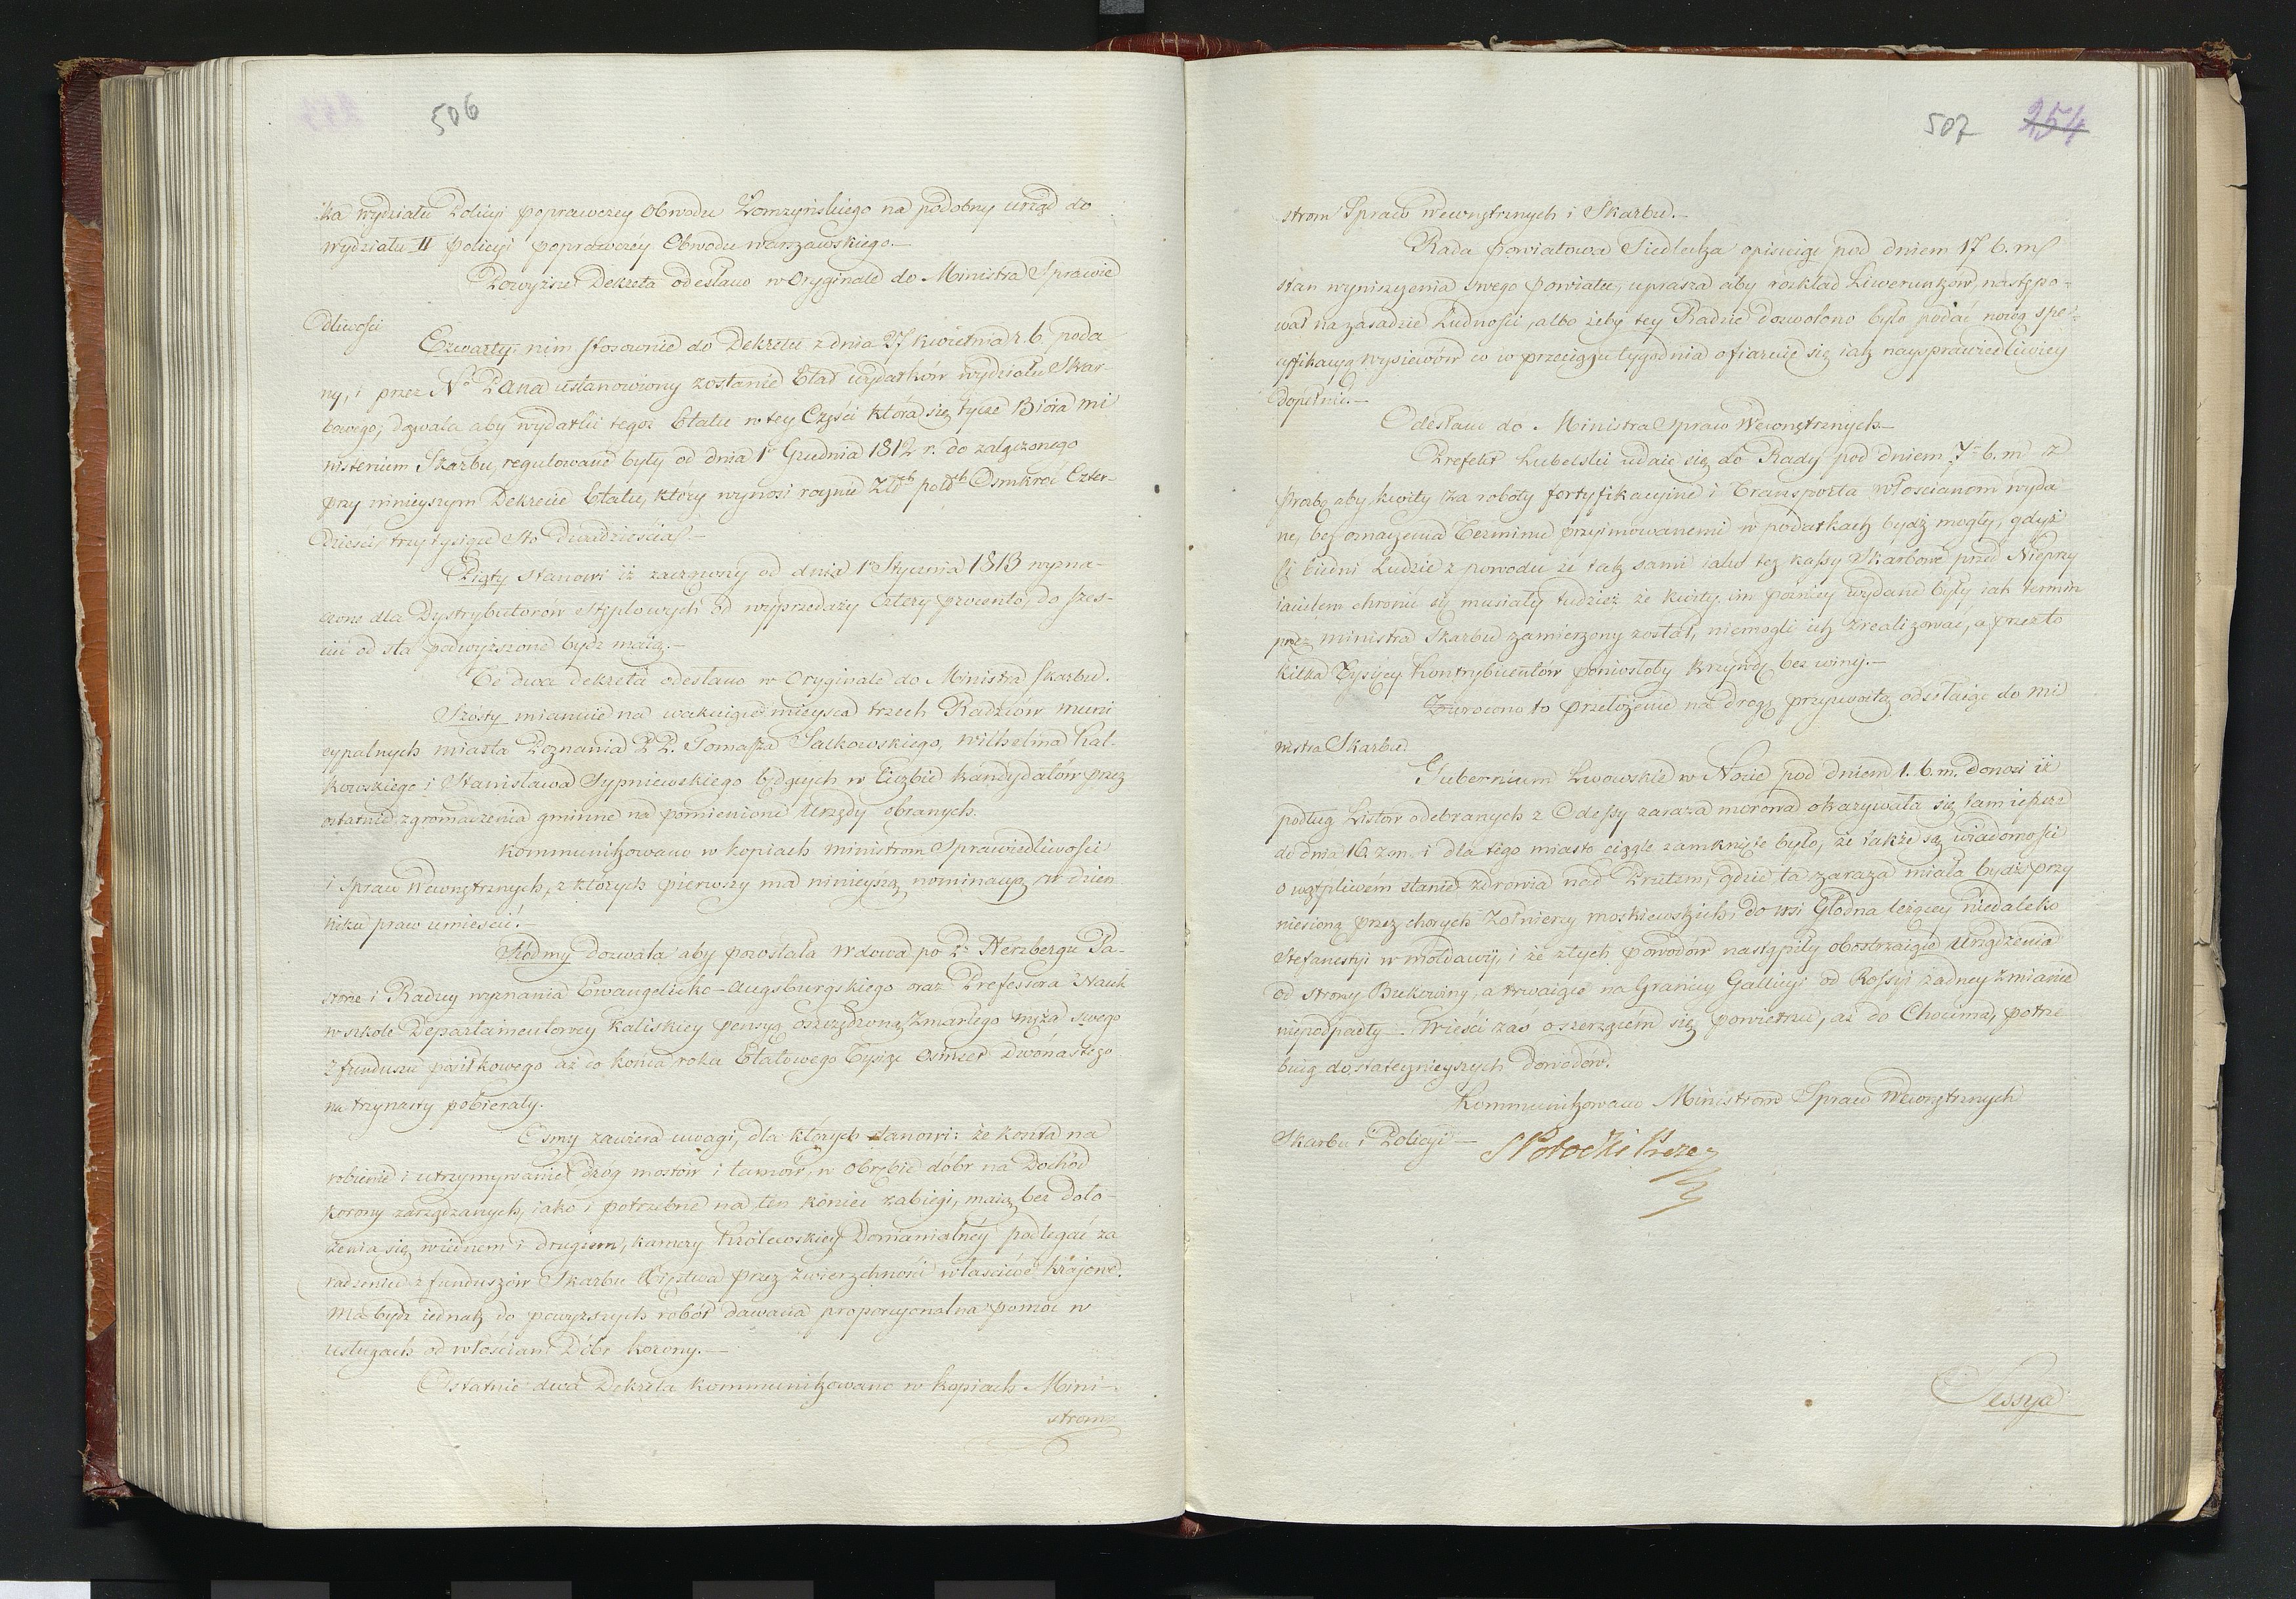 506
ka wydziału Policyi poprawczey Obwodu Łomzyńskiego na podobny urząd do
wydziału II policyi poprawczéy Obwodu warszawskiego.—
Powyższe Dekreta odesłano w Oryginale do Ministra Sprawie
dliwości
Czwarty: nim stosownie do Dekretu z dnia 27 kwietnia r. b. poda
ny, i przez No Pana ustanowiony zostanie Etat wydatków wydziału Skar-
bowego; dozwala aby wydatki tegoż Etatu w tey Części która się tycze Biora mi
nisterium Skarbu, regulowane były od dnia 1o Grudnia 1812 r. do załączonego
przy ninieyszym Dekrecie Etatu, który wynosi rocznie Złtch polsch Osmkroć Czter-
dzieści trzy tysiące sto dwadzieścia.—
Piąty stanowi iż zacząwszy od dnia 1o Stycznia 1813 wyzna-
czone dla Dystrybutorów stęplowych od wyprzedaży cztery procento, do szes-
ciu od sta podwyższone bydz maią.—
Te dwa dekreta odesłano w Oryginale do Ministra skarbu.
Szósty mianuie na wakuiące mieysca trzech Radzców muni
cypalnych miasta Poznania PP. Tomasza Salkowskiego, Wilhelma Kal-
kowskiego i Stanisława Sypniewskiego będących w liczbie kandydatów przez
ostatnie zgromadzenia gminne na pomienione urzędy obranych.
Kommunikowano w kopiach ministrom Sprawiedliwości
i Spraw Wewnętrznych, z których pierwszy ma ninieyszą nominacyą w dzien
niku praw umieścić.
Siodmy Dozwala aby pozostała wdowa po Pu Herzbergu Pa-
storze i Radzcy wyznania Ewangelicko-Augsburgskiego oraz Professora Nauk
w szkole Departamentowey Kaliskiey pensyą oszczędzoną zmarłego męża swego
z funduszu posiłkowego aż do końca roku Etatowego Tysiąc osmset dwónastego
na trzynasty pobierały.
Osmy zawiera uwagi, dla których stanowi: że koszta na
robienie i utrzymywanie dróg mostów i tamów, w obrębie dóbr na Dochód
korony zarządzanych, iako i potrzebne na ten koniec zabiegi, maią bez doło-
żenia się w iednem i drugiem, kamery Królewskiey Domanialnéy podlegać za
radzeniu z funduszów Skarbu Xięstwa przez zwierzchności właściwe kraiowe.
Ma bydz iednak do powyższych robót dawana proporcyonalna pomoc w
usługach od włościan Dóbr korony.—
Ostatnie dwa Dekreta kommunikowano w kopiach Mini-
strom
507 254
strom Spraw Wewnętrznych i Skarbu.—
Rada powiatowa Siedlecka opisuiąc pod dniem 17 b. m.
stan wyniszczenia swego powiatu, uprasza aby rozkład Liwerunków następo-
wał na zasadzie Ludności, albo żeby tey Radzie dozwolono było podać nową spe-
cyfikacyą wysiewów co w przeciągu tygodnia ofiaruie się iak naysprawiedliwiey
dopełnić.—
Odesłano do Ministra Spraw Wewnętrznych.—
Prefekt Lubelski udaie się do Rady pod dniem 7o b. m z
prozbą aby kwity za roboty fortyfikacyine i Transporta włościanom wyda
ne, bez oznaczenia Terminu przyimowanemi w podatkach bydź mogły, gdyż
ci biedni Ludzie z powodu że tak sami iako też kassy Skarbowe przed Nieprzy
iacielem chronić się musiały tudzież że kwity im pozniey wydane były iak termin
przez ministra Skarbu zamierzony został, niemogli ich zrealizować, a przez to
kilka Tysięcy kontrybuentów poniosłoby krzywdę bez winy.—
Zwrócono to przełożenie na drogę przyzwoitą odsełaiąc do mi
nistra Skarbu.
Gubernium Lwowskie w Nocie pod dniem 1. b. m. donosi iż
podług Listów odebranych z Odessy zaraza morowa okazywała się tam ieszcze
do dnia 16 z. m. i dla tego miasto ciągle zamknięte było, że także są wiadomości
o wątpliwém stanie zdrowia nad Prutem, gdzie ta zaraza miała bydź przy
niesioną przez chorych żołnierzy moskiewskich, do wsi Głodna leżącey niedaleko
Stefanestyi w mołdawij, i że z tych powodów nastąpiły obostrzaiące urządzenia
od strony Bukowiny, a trwaiące na Granicy Gallicyi od Rossyi żadney zmianie
niepodpadły. Wieści zaś o szerzącém się powietrzu, aż do Chocima, potrze
buią dostatecznieyszych dowodów.
Kommunikowano Ministrom Spraw Wewnętrznych
Skarbu i Policyi—
S Potocki Prezes
Sessya